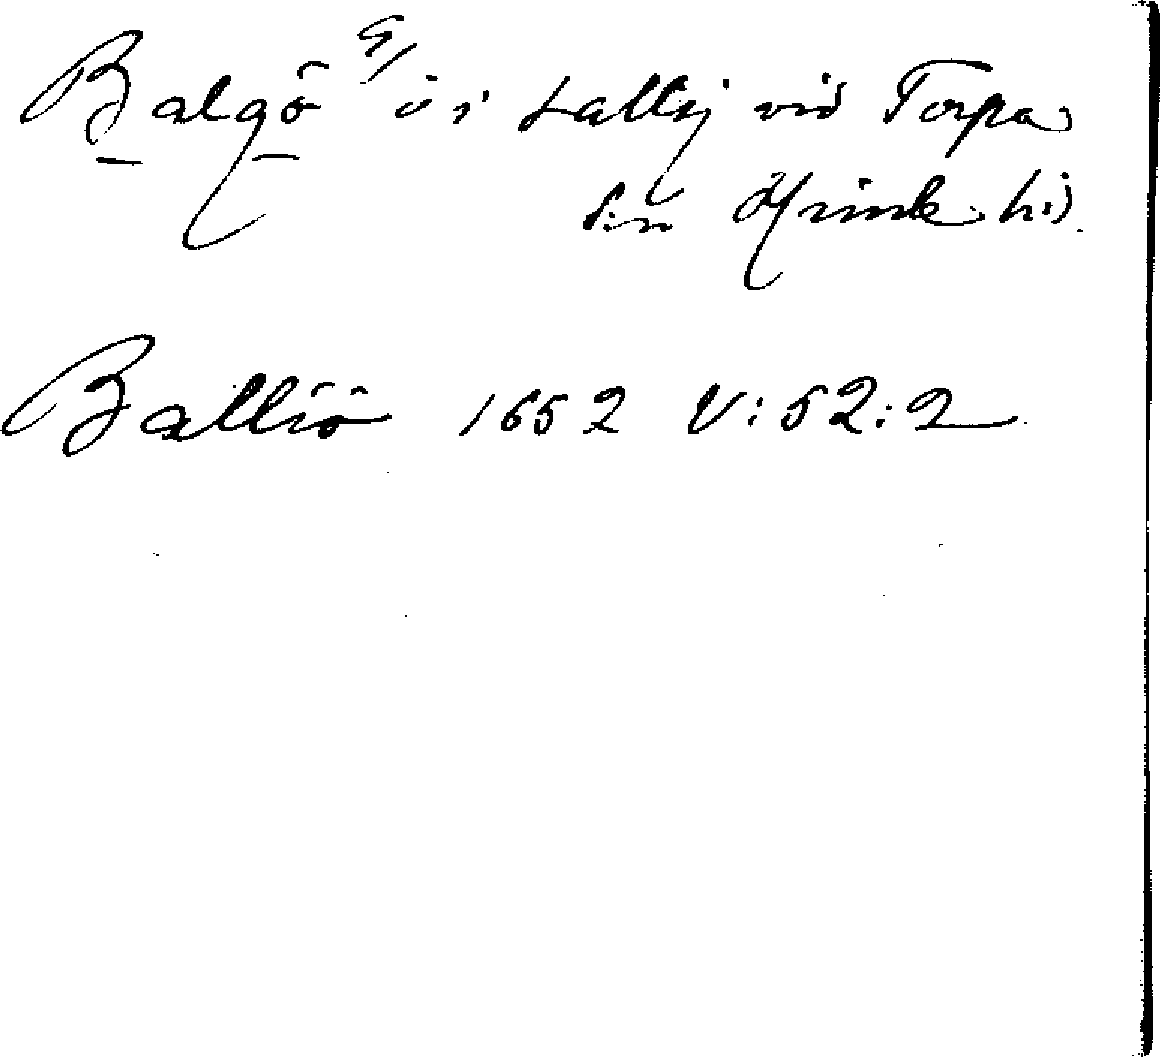 Balgö G/ ö i Kattegj vid Torpa
sn Himle hd.
Balliö 1652 V:52:2